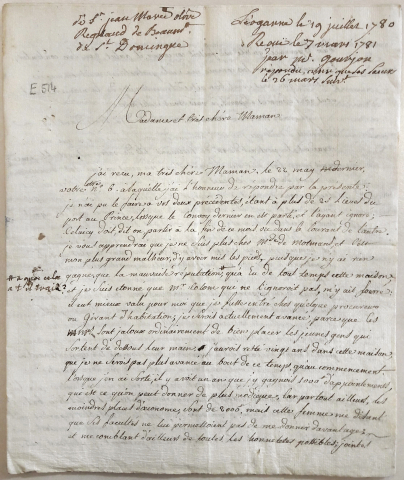 de Sr jean Marie olive
Regnaud de Beaum.
de St Domingue
Léogane le 19 juillet 1780
Reçue le 7 mars 1781
par mr.
répondu
le 26 mars suiv.
E 514
Madame et très chère Maman
j'ai reçu, ma très chère Maman, le 22 may dernier,
votre No. 6 a laquelle j'ai l'honneur de répondre par la présente
je n'ai pu le faire a vos deux précédentes, étant a plus de 25 lieues du
port au Prince, lorsque le Convoy dernier en est parti, et l'ayant ignoré;
Celui cy doit, dit on partir a la fin de ce mois ou dans le courant de l'autre.
je vous apprendrai que je ne suis plus chez Mde de Motmans, et c'est
mon plus grand malheur d'y avoir mis les pieds, puisque je n'y ai rien
gagné, que la mauvaise réputation, qu'a Eu de tout temps cette maison,
et je suis étonné que Mr. qui ne l'ignoroit pas, m'y ait fourré
il eut mieux valu pour moi que je fusse entré chez quelque procureur
ou Gérant d'habitation; je serois actuellement avancé, parce que les
sont jaloux ordinairement de bien placer les jeunes gens qui
Sortent de dessous leur main; j'aurois resté vingt ans dans cette maison,
que je ne serois pas plus avancé au bout de ce temps, qu'au commencement.
Lorsque j'en ai sorti, il y avoit un an que j'y gagnois 1000 d'appointements,
que est ce qu'on peut donner de plus médiocre, Car partout ailleurs, les
moindres places d'économe, sont de 2000, mais cette femme me disant
que ses facultés ne lui permettoient pas de me donner davantage,
et me comblant d'ailleurs de toutes les honnêtetés possibles, jointes